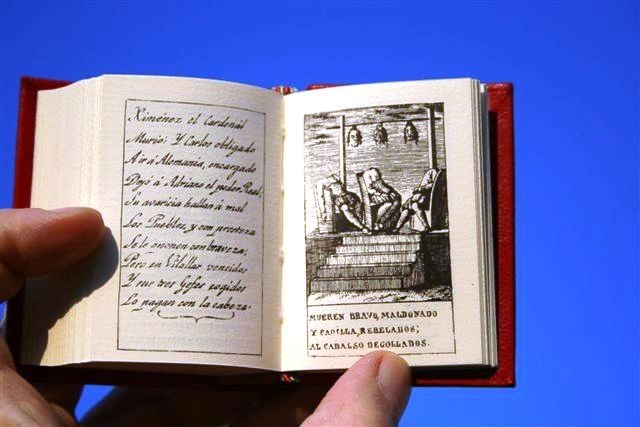 Ximénez el Cardenal
Murió: Y Carlos obligado
A ir á Alemania, encargado
Dejó á Adriano el poder Real,
Su avaricia hallan á mal
Los Pueblos, y con presteza
Se le oponen con braveza;
Pero en Villalar vencidos
Y sus tres Gefes cogidos
Lo pagan con la cabeza.
MUEREN BRAVO, MALDONADO
Y PADILLA, REBELADOS;
AL CADALSO DEGOLLADOS.